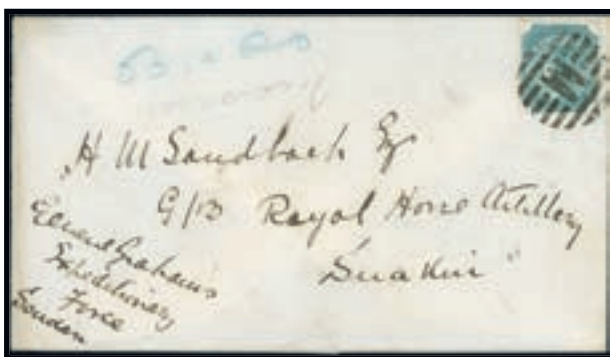 H M Sandbach Esq
G/B Royal Horse Artillery
"Suakin"
General Graham's
Expeditionary
Force
Soudan